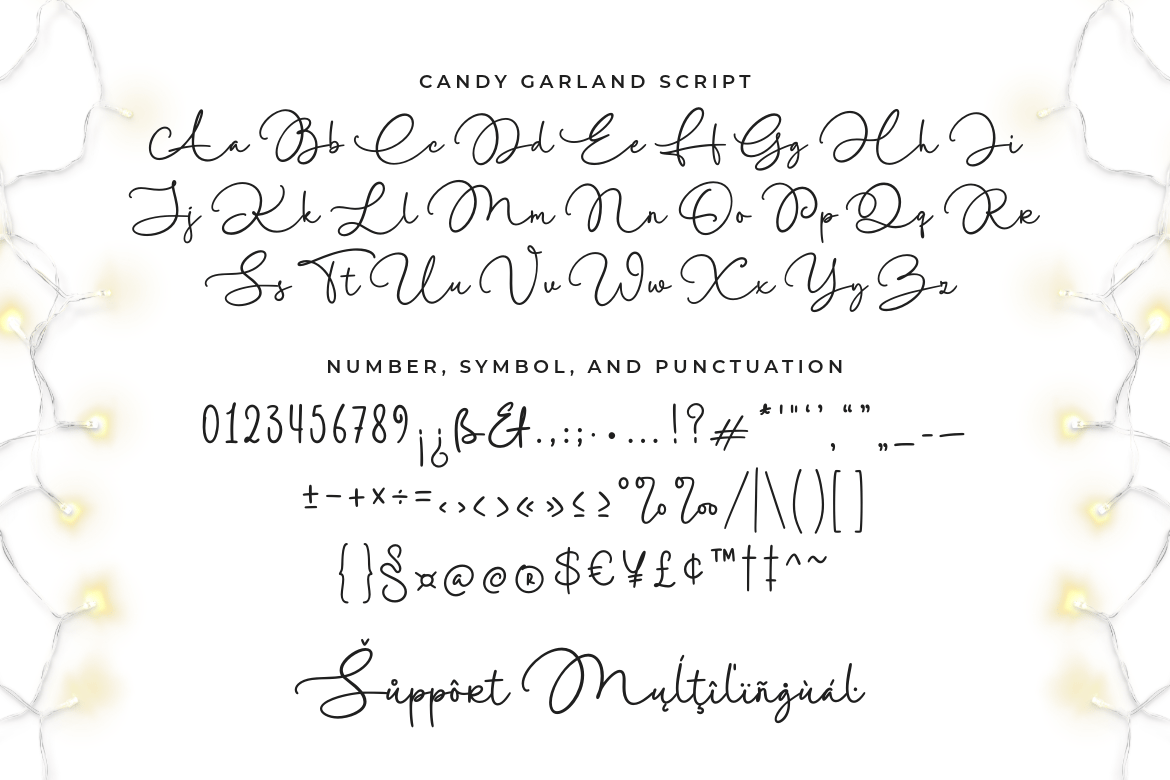 CANDY GARLAND SCRIPT
Aa Bb Cc Dd Ee Ff Gg Hh Ii
Jj Kk Ll Mm Nn Oo Pp Qq Rr
Ss Tt Uu Vv Ww Xx Yy Zz
NUMBER, SYMBOL, AND PUNCTUATION
0123456789¡¿ß&.,:;·•...!?#*'"‘’‚“”„_-–—
±−+×÷=‹›<>«»≤≥°%‰/|\()[]
{}§¤@©®$€¥£¢™†‡^~
Šůppôrt Mųĺţîľïñġùáŀ